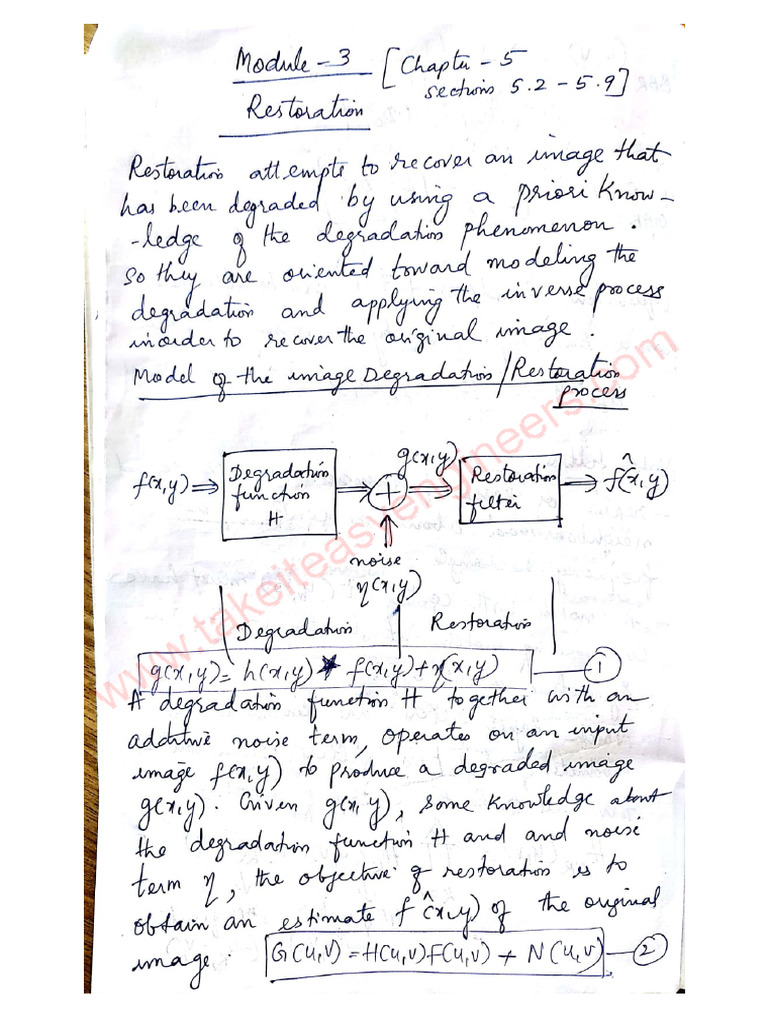 Module - 3 [Chapter - 5
sections 5.2 - 5.9]
Restoration
Restoration attempts to recover an image that
has been degraded by using a priori know-
-ledge of the degradation phenomenon.
So they are oriented toward modeling the
degradation and applying the inverse process
inorder to recover the original image.
Model of the image Degradation / Restoration
process
f(x,y) ⇒ Degradation function H ⇒ + g(x,y) ⇒ Restoration filter ⇒ f̂(x,y)
noise
η(x,y)
Degradation | Restoration
g(x,y) = h(x,y) * f(x,y) + η(x,y) — 1
A degradation function H together with an
additive noise term, operates on an input
image f(x,y) to produce a degraded image
g(x,y). Given g(x,y), some knowledge about
the degradation function H and and noise
term η, the objective of restoration is to
obtain an estimate f̂(x,y) of the original
image. G(u,v) = H(u,v)F(u,v) + N(u,v) — 2
www.takeiteasyengineers.com